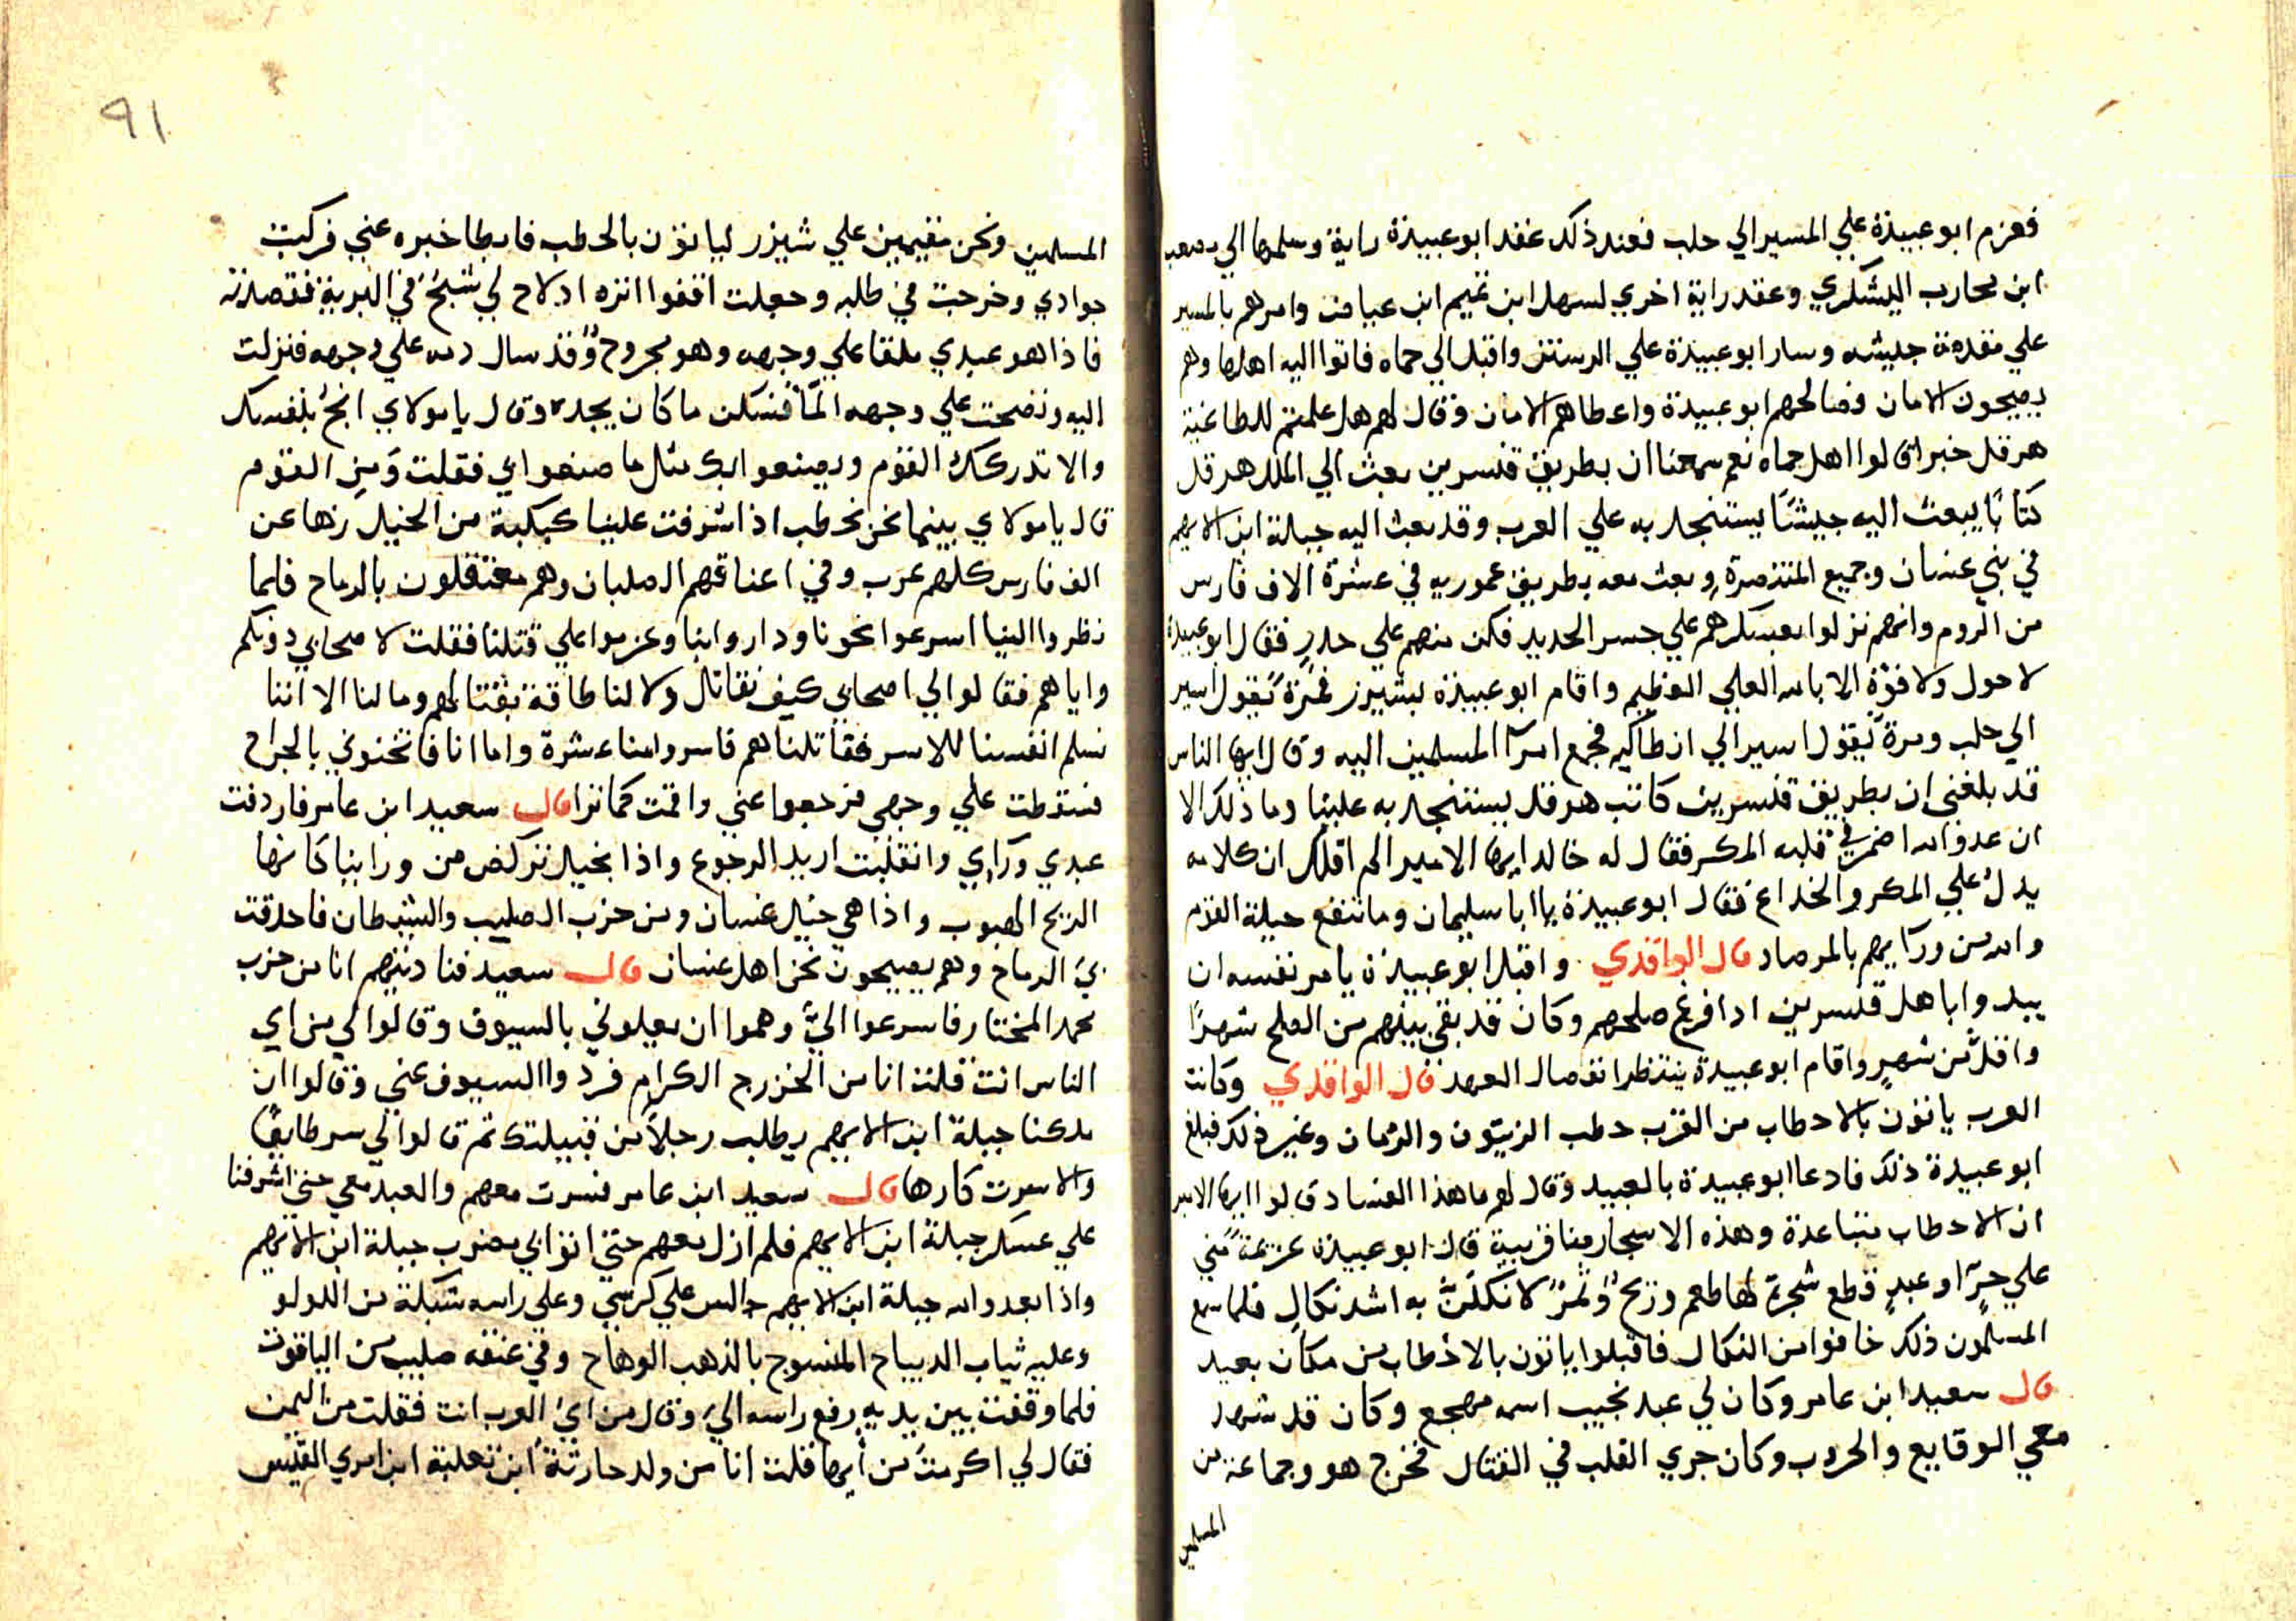 فعزم ابو عبيدة علي المسير الي حلب فعند ذلك عقد ابو عبيدة راية وسلمها الي مصعب
ابن محارب اليشكري وعقد راية اخري لسهل ابن تميم ابن عياض وامرهم بالمسير
علي مقدمة جيشه وسار ابو عبيدة علي الرستن واقبل الي حماه فاتوا اليه اهلها وهم
يصيحون الامان فصالحهم ابو عبيدة واعطاهم الامان وقال لهم هل علمتم للطاغية
هرقل خبرا قالوا اهل حماه نعم سمعنا ان بطريق قنسرين بعث الي الملك هرقل
كتابًا يبعث اليه جيشًا يستنجد به علي العرب وقد بعث اليه جبلة ابن الايهم
في بني غسان وجميع المتنصرة وبعث معه بطريق عموريه في عشرة الاف فارس
من الروم وانهم نزلوا بعسكرهم علي جسر الحديد فكن منهم علي حذرٍ فقال ابو عبيدة
لا حول ولا قوّة الا بالله العلي العظيم واقام ابو عبيدة بشيزر فمرّة يقول اسير
الي حلب ومرة يقول اسير الي انطاكيه فجمع امرآ المسلمين اليه وقال ايها الناس
قد بلغني ان بطريق قنسرين كاتب هرقل يستنجد به علينا وما ذلك الا
ان عدو الله اضمر في قلبه المكر فقال له خالد ايها الامير الم اقل لك ان كلامه
يدلُ علي المكر والخداع فقال ابو عبيدة يا ابا سليمان وما تنفع حيلة القوم
والله من ورآيهم بالمرصاد قال الواقدي واقبل ابو عبيدة يامر نفسه ان
يبدوا باهل قنسرين اذا فرغ صلحهم وكان قد بقي بينهم من الصلح شهرًا
واقلّ من شهرٍ واقام ابو عبيدة ينتظر انفصال العهد قال الواقدي وكانت
العرب ياتون بالاحطاب من القرب حطب الزيتون والرمان وغير ذلك فبلغ
ابو عبيدة ذلك فادعا ابو عبيدة بالعبيد وقال لهم ما هذا الفساد قالوا ايها الامير
ان الاحطاب متباعدة وهذه الاشجار منا قريبة قال ابو عبيدة عزيمةً مني
علي حرٍّ او عبدٍ قطع شجرة لها طعم وريحٌ وثمرٌ لانكلنّ به اشد نكالٍ فلما سمع
المسلمون ذلك خافوا من النكال فاقبلوا ياتون بالاحطاب من مكان بعيد
قال سعيد ابن عامر وكان لي عبد نجيب اسمه مهجع وكان قد شهد
معي الوقايع والحروب وكان جري القلب في القتال فخرج هو وجماعة من
المسلمين
٩١
المسلمين ونحن مقيمين علي شيزر لياتون بالحطب فابطا خبره عني فركبت
جوادي وخرجت في طلبه وجعلت اقفوا اثره اذ لاح لي شبحٌ في البرية فقصدته
فاذا هو عبدي ملقا علي وجهه وهو مجروحٌ وقد سال دمه علي وجهه فنزلت
اليه ونضحت علي وجهه المّا فسكن ما كان يجده وقال يا مولاي انجُ بنفسك
والا تدركك القوم ويصنعوا بك مثل ما صنعوا بي فقلت ومن القوم
قال يا مولاي بينما نحن نحطب اذ اشرفت علينا كبكبة من الخيل زهاء عن
الف فارس كلهم عرب وفي اعناقهم الصلبان وهم معتقلون بالرماح فلما
نظروا الينا اسرعوا نحونا وداروا بنا وعزموا علي قتلنا فقلت لاصحابي دونكم
واياهم فقالوا لي اصحابي كيف نقاتل ولا لنا طاقة بقتالهم وما لنا الا اننا
نسلم انفسنا للاسر فقاتلناهم فاسروا منا عشرة واما انا فاثخنوني بالجراح
فسقطت علي وجهي فرجعوا عني واقمت كما ترا قال سعيد ابن عامر فاردفت
عبدي ورآي وانقلبت اريد الرجوع واذا بخيل تركض من وراينا كانها
الريح الهبوب واذا هي خيل غسان ومن حزب الصليب والشيطان فاحدقت
بي الرماح وهم يصيحون نحن اهل غسان قال سعيد فناديتهم انا من حزب
محمد المختار فاسرعوا اليَّ وهموا ان يعلوني بالسيوف وقالوا لي من اي
الناس انت فلت انا من الخزرج الكرام فردّوا السيوف عني وقالوا ان
ملكنا جبلة ابن الايهم يطلب رجلاً من قبيلتك ثم قالوا لي سر طايعًا
والا سرت كارها قال سعيد ابن عامر فسرت معهم والعبد معي حتي اشرفنا
علي عسكر جبلة ابن الايهم فلم ازل معهم حتي اتوا بي مضرب جبلة ابن الايهم
واذا بعدو الله جبلة ابن الايهم جالس علي كرسي وعلي راسه شبكة من اللولو
وعليه ثياب الديباج المنسوج بالذهب الوهاج وفي عنقه صليب من الياقوت
فلما وقفت بين يديه رفع راسه الي وقال من ايُ العرب انت فقلت من اليمن
فقال لي اكرمتَ من ايها فلت انا من ولد حارثة ابن ثعلبة ابن امري القيس